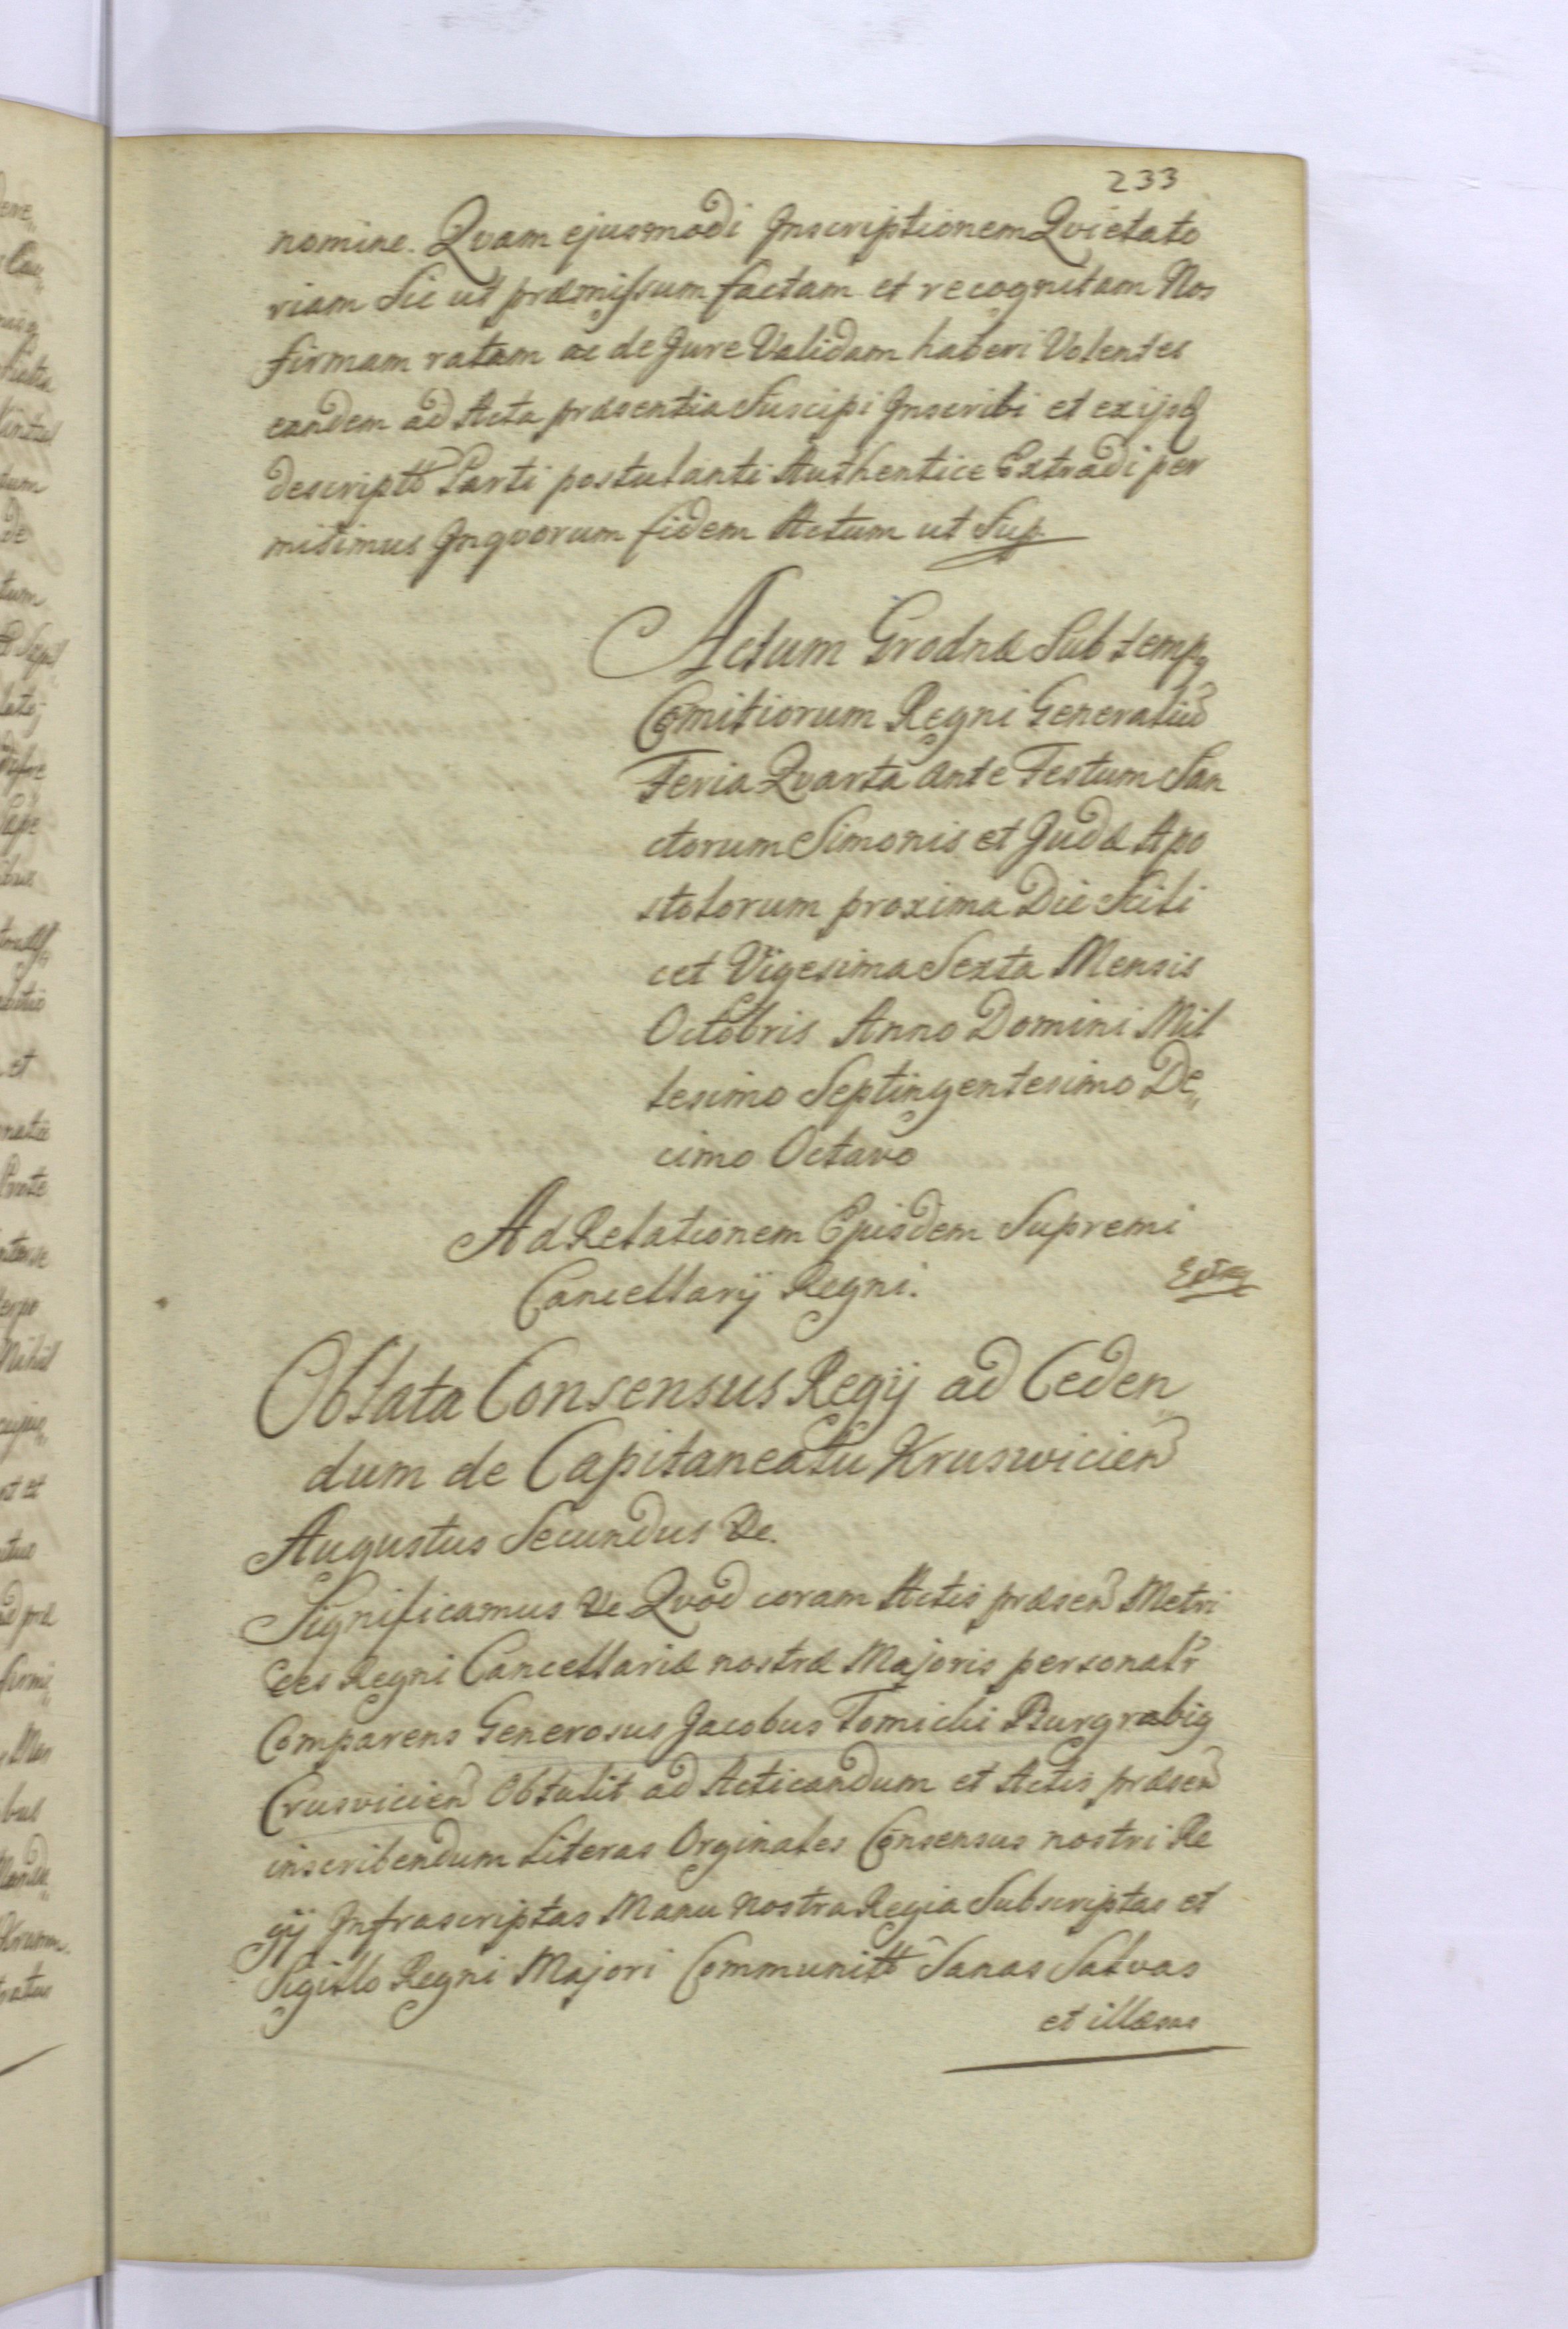 233
nomine. Qvam ejusmodi Inscriptionem Qvietato
riam Sic ut præmissum factam et recognitam Nos
firmam ratam ac de Jure Validam haberi Volentes
eandem ad Acta præsentia Suscipi Inscribi et exijsq
descriptã Parti postulanti Authentice Extradi per
misimus Inqvorum fidem Actum ut Sup.
Actum Grodnæ Sub temp9
Comitiorum Regni Generaliũ
Feria Qvarta ante Festum San
ctorum Simonis et Judæ Apo
stolorum proxima Die Scili
cet Vigesima Sexta Mensis
Octobris Anno Domini Mil
lesimo Septingentesimo De„
cimo Octavo
Ad Relationem Ejusdem Supremi
Cancellarij Regni.
Oblata Consensus Regij ad Ceden„
dum de Capitaneatu Kruswicień
Augustus Secundus &c.
Significamus &c Qvod coram Actis præseñ Metri
ces Regni Cancellariæ nostræ Majoris personalr
Comparens Generosus Jacobus Tomicki Burgrabi9
Crusvicień Obtulit ad Acticandum et Actis præseñ
inscribendum Literas Orginales Consensus nostri Re
gij Infrascriptas Manu nostra Regia Subscriptas et
Sigillo Regni Majori Communitas Sanas Salvas
et illæsas